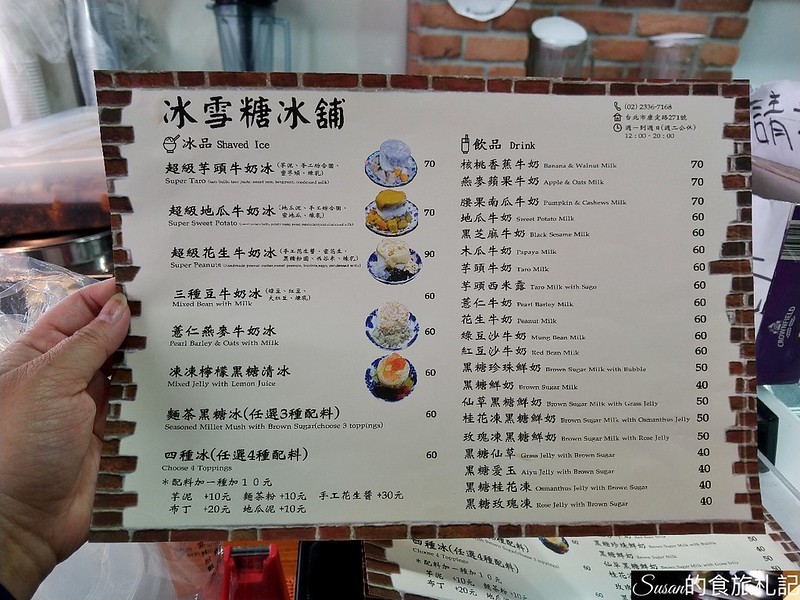 冰雪糖冰舖
冰品 Shaved Ice
超級芋頭牛奶冰(芋泥、手工綜合圓、蜜芋頭、煉乳) 70
Super Taro
超級地瓜牛奶冰(地瓜泥、手工綜合圓、蜜地瓜、煉乳) 70
Super Sweet Potato
超級花生牛奶冰(手工花生醬、蜜花生、黑糖粉圓、西谷米、煉乳) 90
Super Peanuts
三種豆牛奶冰(綠豆、紅豆、大紅豆、煉乳) 60
Mixed Bean with Milk
薏仁燕麥牛奶冰 60
Pearl Barley & Oats with Milk
凍凍檸檬黑糖清冰 60
Mixed Jelly with Lemon Juice
麵茶黑糖冰(任選3種配料) 60
Seasoned Millet Mush with Brown Sugar(choose 3 toppings)
四種冰(任選4種配料) 60
Choose 4 Toppings
*配料加一種加10元
芋泥 +10元 麵茶粉 +10元 手工花生醬 +30元
布丁 +20元 地瓜泥 +10元
(02) 2336-7168
台北市康定路271號
週一到週日(週二公休)
12:00-20:00
飲品 Drink
核桃香蕉牛奶 Banana & Walnut Milk 70
燕麥蘋果牛奶 Apple & Oats Milk 70
腰果南瓜牛奶 Pumpkin & Cashews Milk 70
地瓜牛奶 Sweet Potato Milk 60
黑芝麻牛奶 Black Sesame Milk 60
木瓜牛奶 Papaya Milk 60
芋頭牛奶 Taro Milk 60
芋頭西米露 Taro Milk with Sago 60
薏仁牛奶 Pearl Barley Milk 60
花生牛奶 Peanut Milk 60
綠豆沙牛奶 Mung Bean Milk 60
紅豆沙牛奶 Red Bean Milk 60
黑糖珍珠鮮奶 Brown Sugar Milk with Bubble 50
黑糖鮮奶 Brown Sugar Milk 40
仙草黑糖鮮奶 Brown Sugar Milk with Grass Jelly 50
桂花凍黑糖鮮奶 Brown Sugar Milk with Osmanthus Jelly 50
玫瑰凍黑糖鮮奶 Brown Sugar Milk with Rose Jelly 50
黑糖仙草 Grass Jelly with Brown Sugar 40
黑糖愛玉 Aiyu Jelly with Brown Sugar 40
黑糖桂花凍 Osmanthus Jelly with Brown Sugar 40
黑糖玫瑰凍 Rose Jelly with Brown Sugar 40
請
CROWNFIELD
四種冰(任選4種配料) 60
Choose 4 Toppings
*配料加一種加10元
芋泥 +10元
布丁 +20元
黑糖珍珠鮮奶
黑糖鮮奶
仙草黑糖鮮奶
Susan的食旅札記